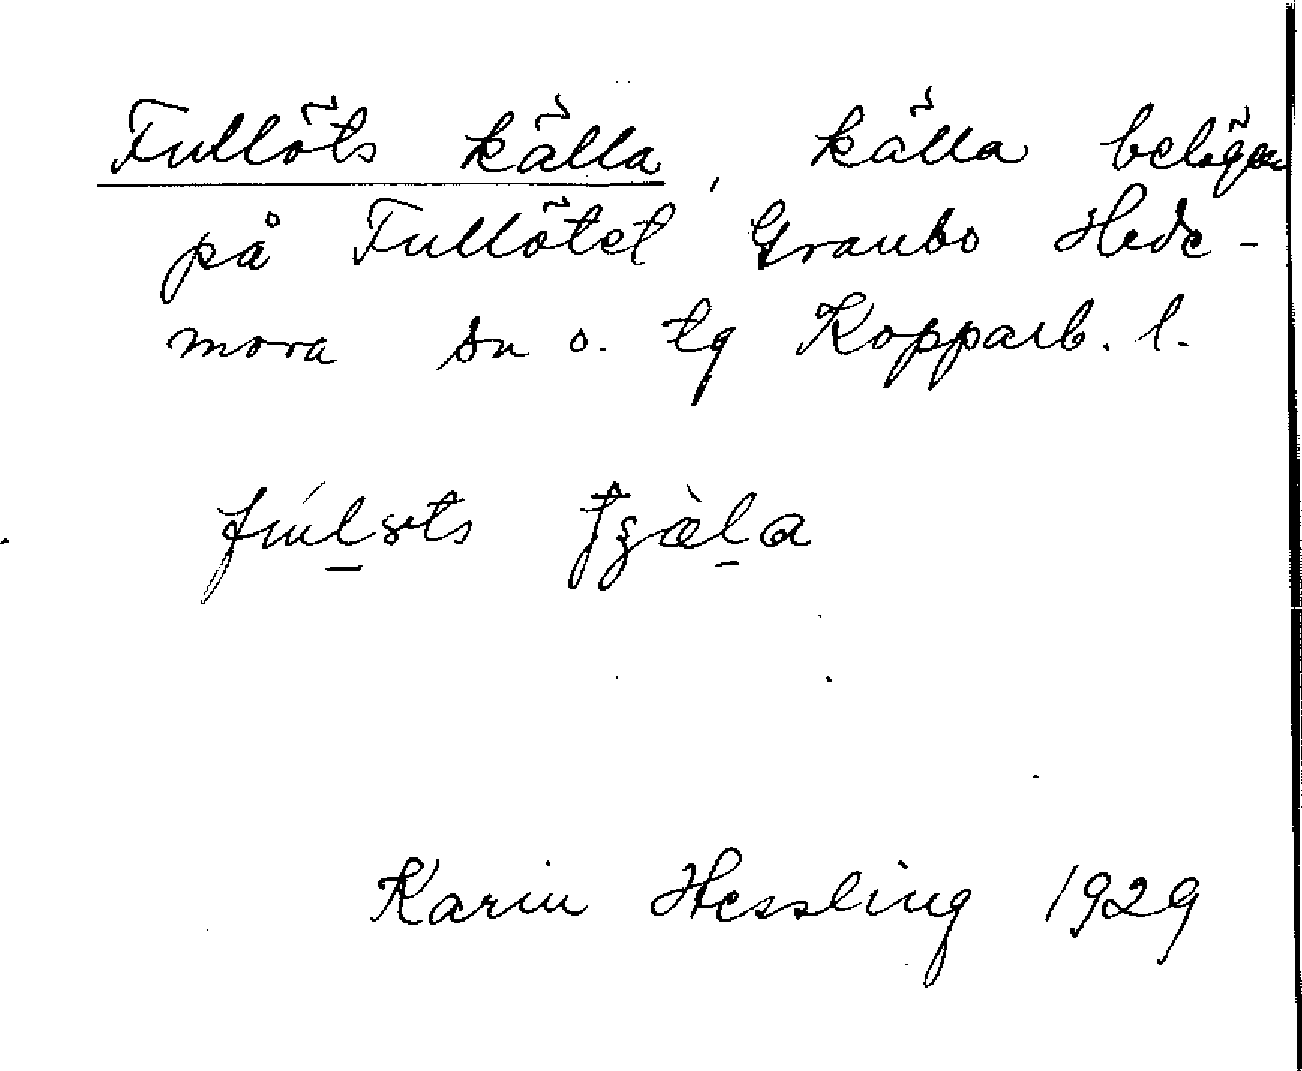 Fullöts källa, källa belägen
på Fullötet Graubo Hede-
mora sn o. tg Kopparb. l.
Karin Hessling 1929